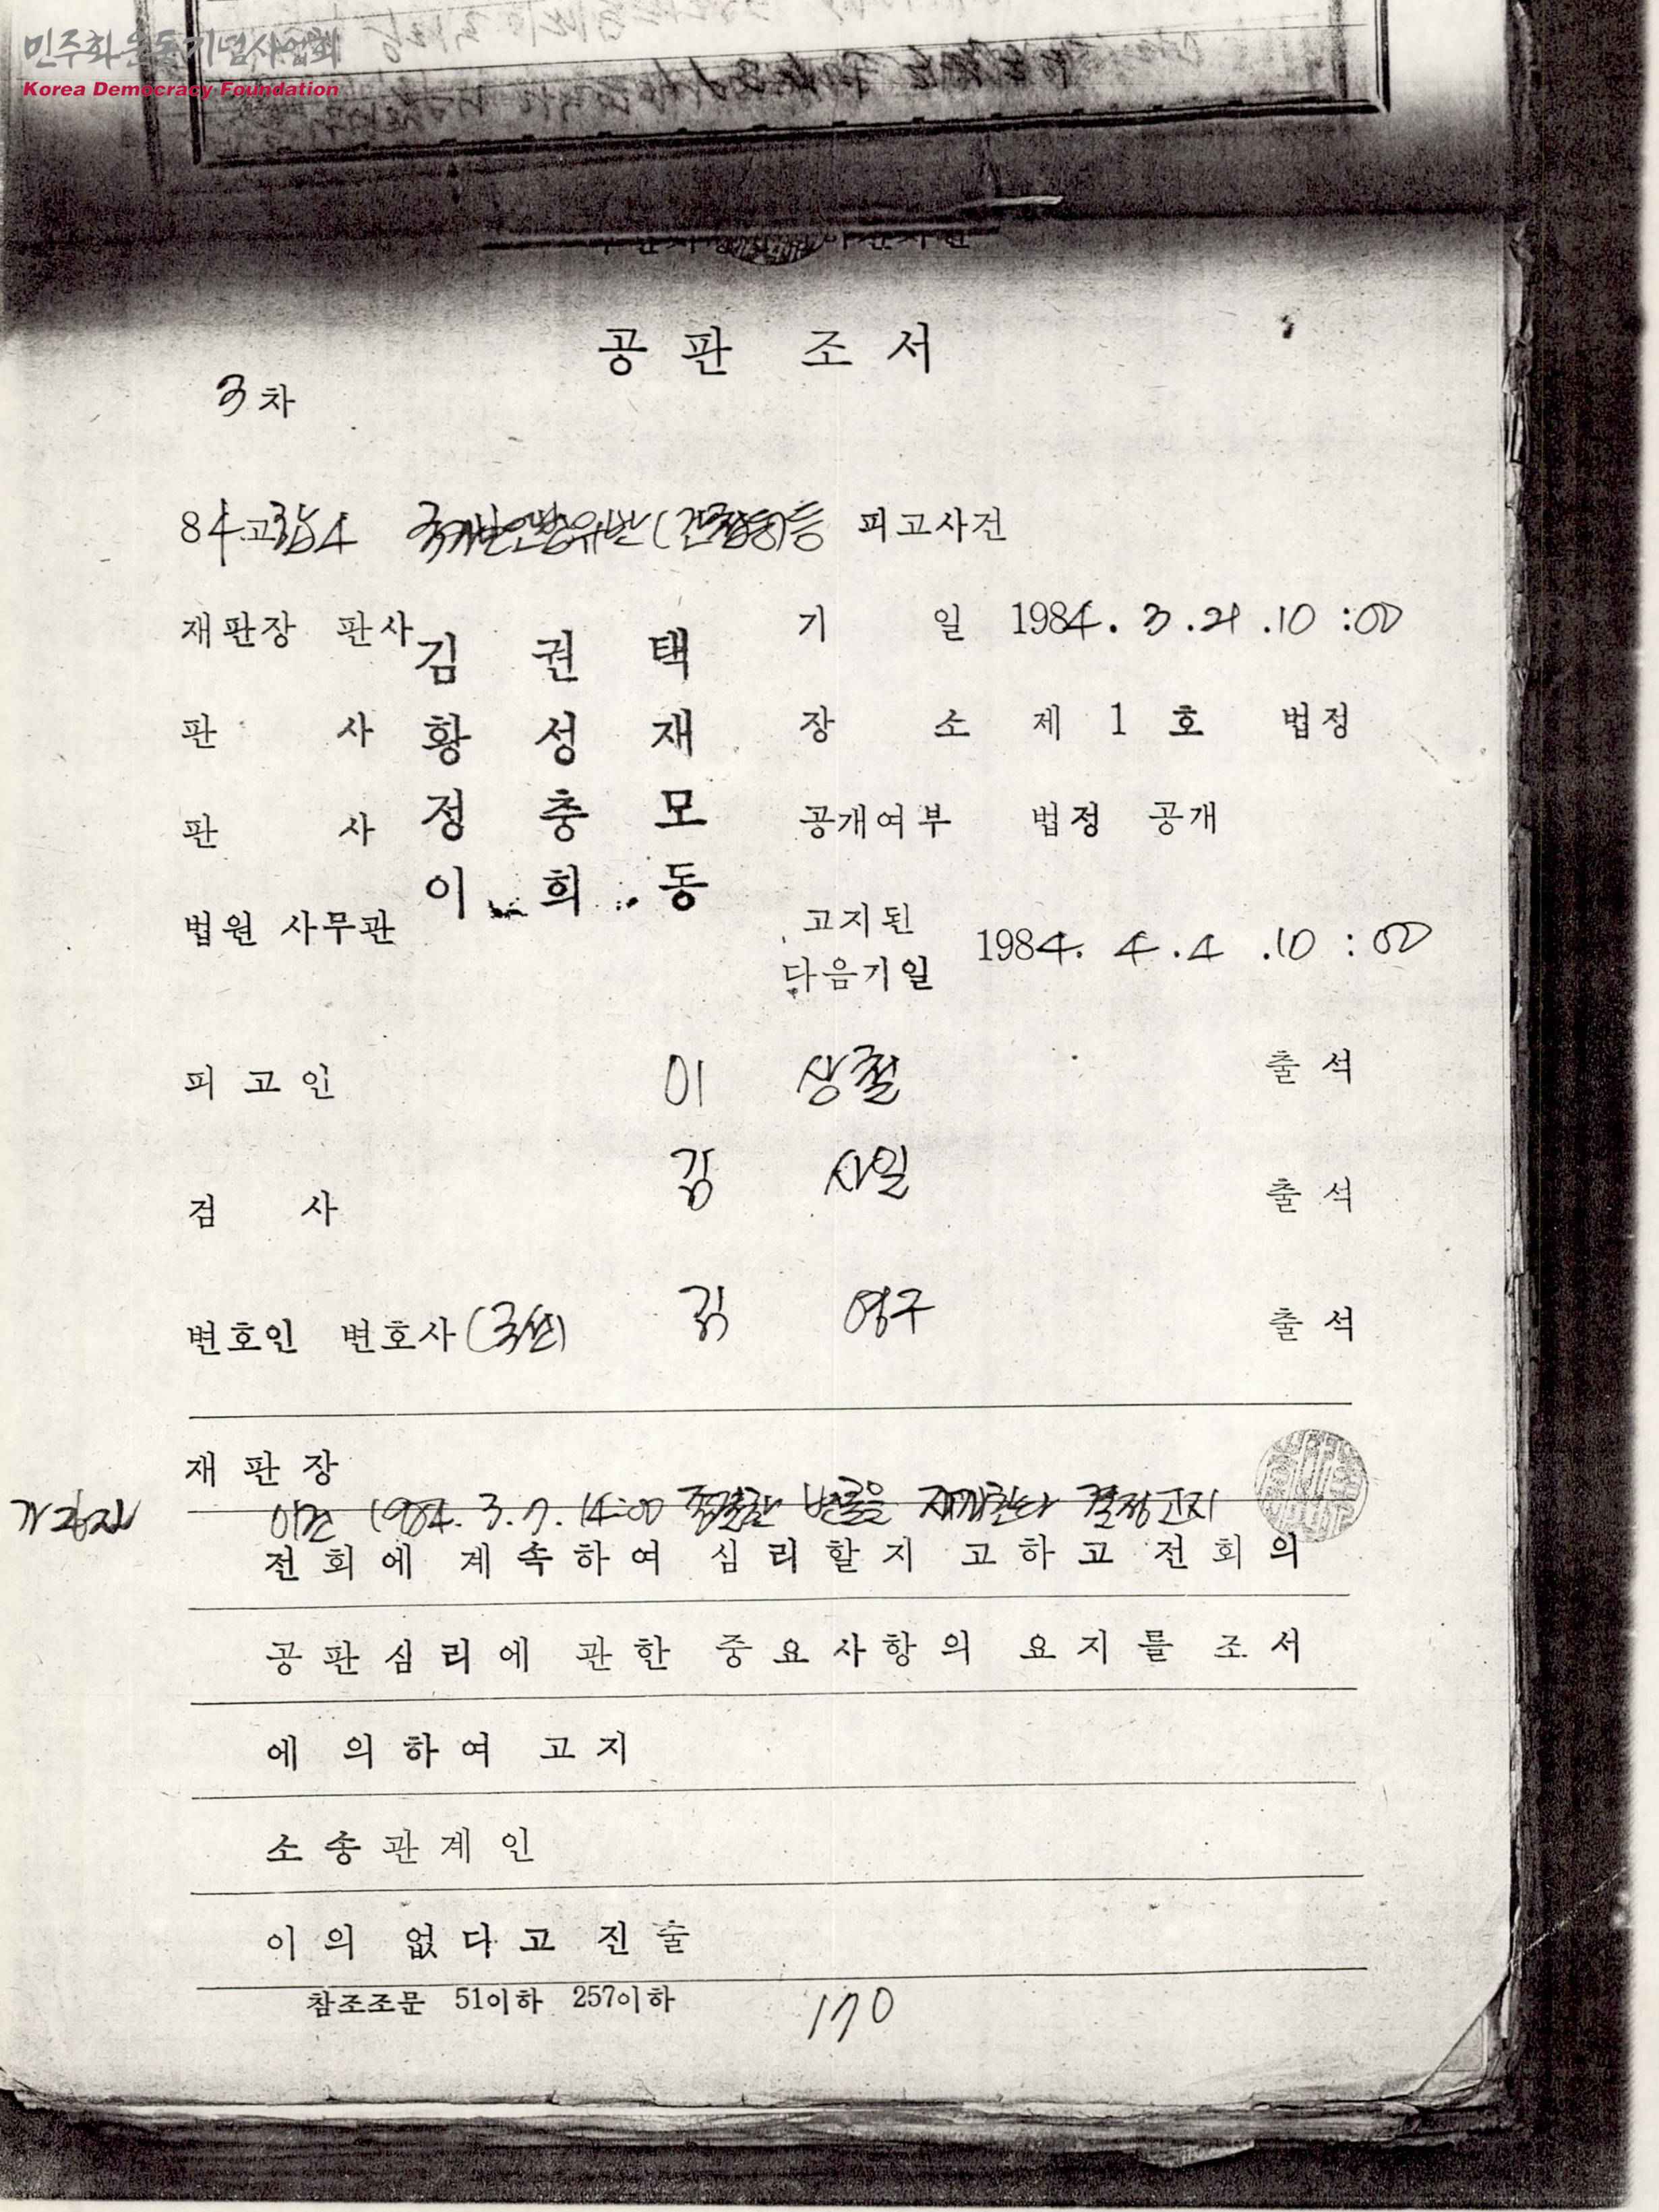 민주화운동기념사업회
Korea Democracy Foundation
공판 조서
3차
84고합4 국가보안법위반(간첩)등 피고사건
재판장 판사 김권택 기일 1984. 3. 21. 10:00
판사 황성재 장소 제1호 법정
판사 정충모 공개여부 법정 공개
법원 사무관 이희동 고지된 다음기일 1984. 4. 4. 10:00
피고인 이상철 출석
검사 사일 출석
변호인 변호사(국선) 김영구 출석
재판장
이건 1984. 3. 7. 14:00 종결한 변론을 재개한다 결정고지
전회에 계속하여 심리할지 고하고 전회의
공판심리에 관한 중요사항의 요지를 조서
에 의하여 고지
소송관계인
이의 없다고 진술
참조조문 51이하 257이하 170